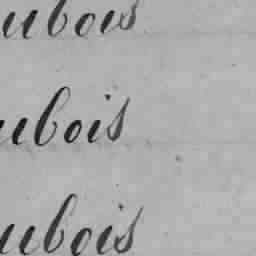 ubois
ubois
ubois